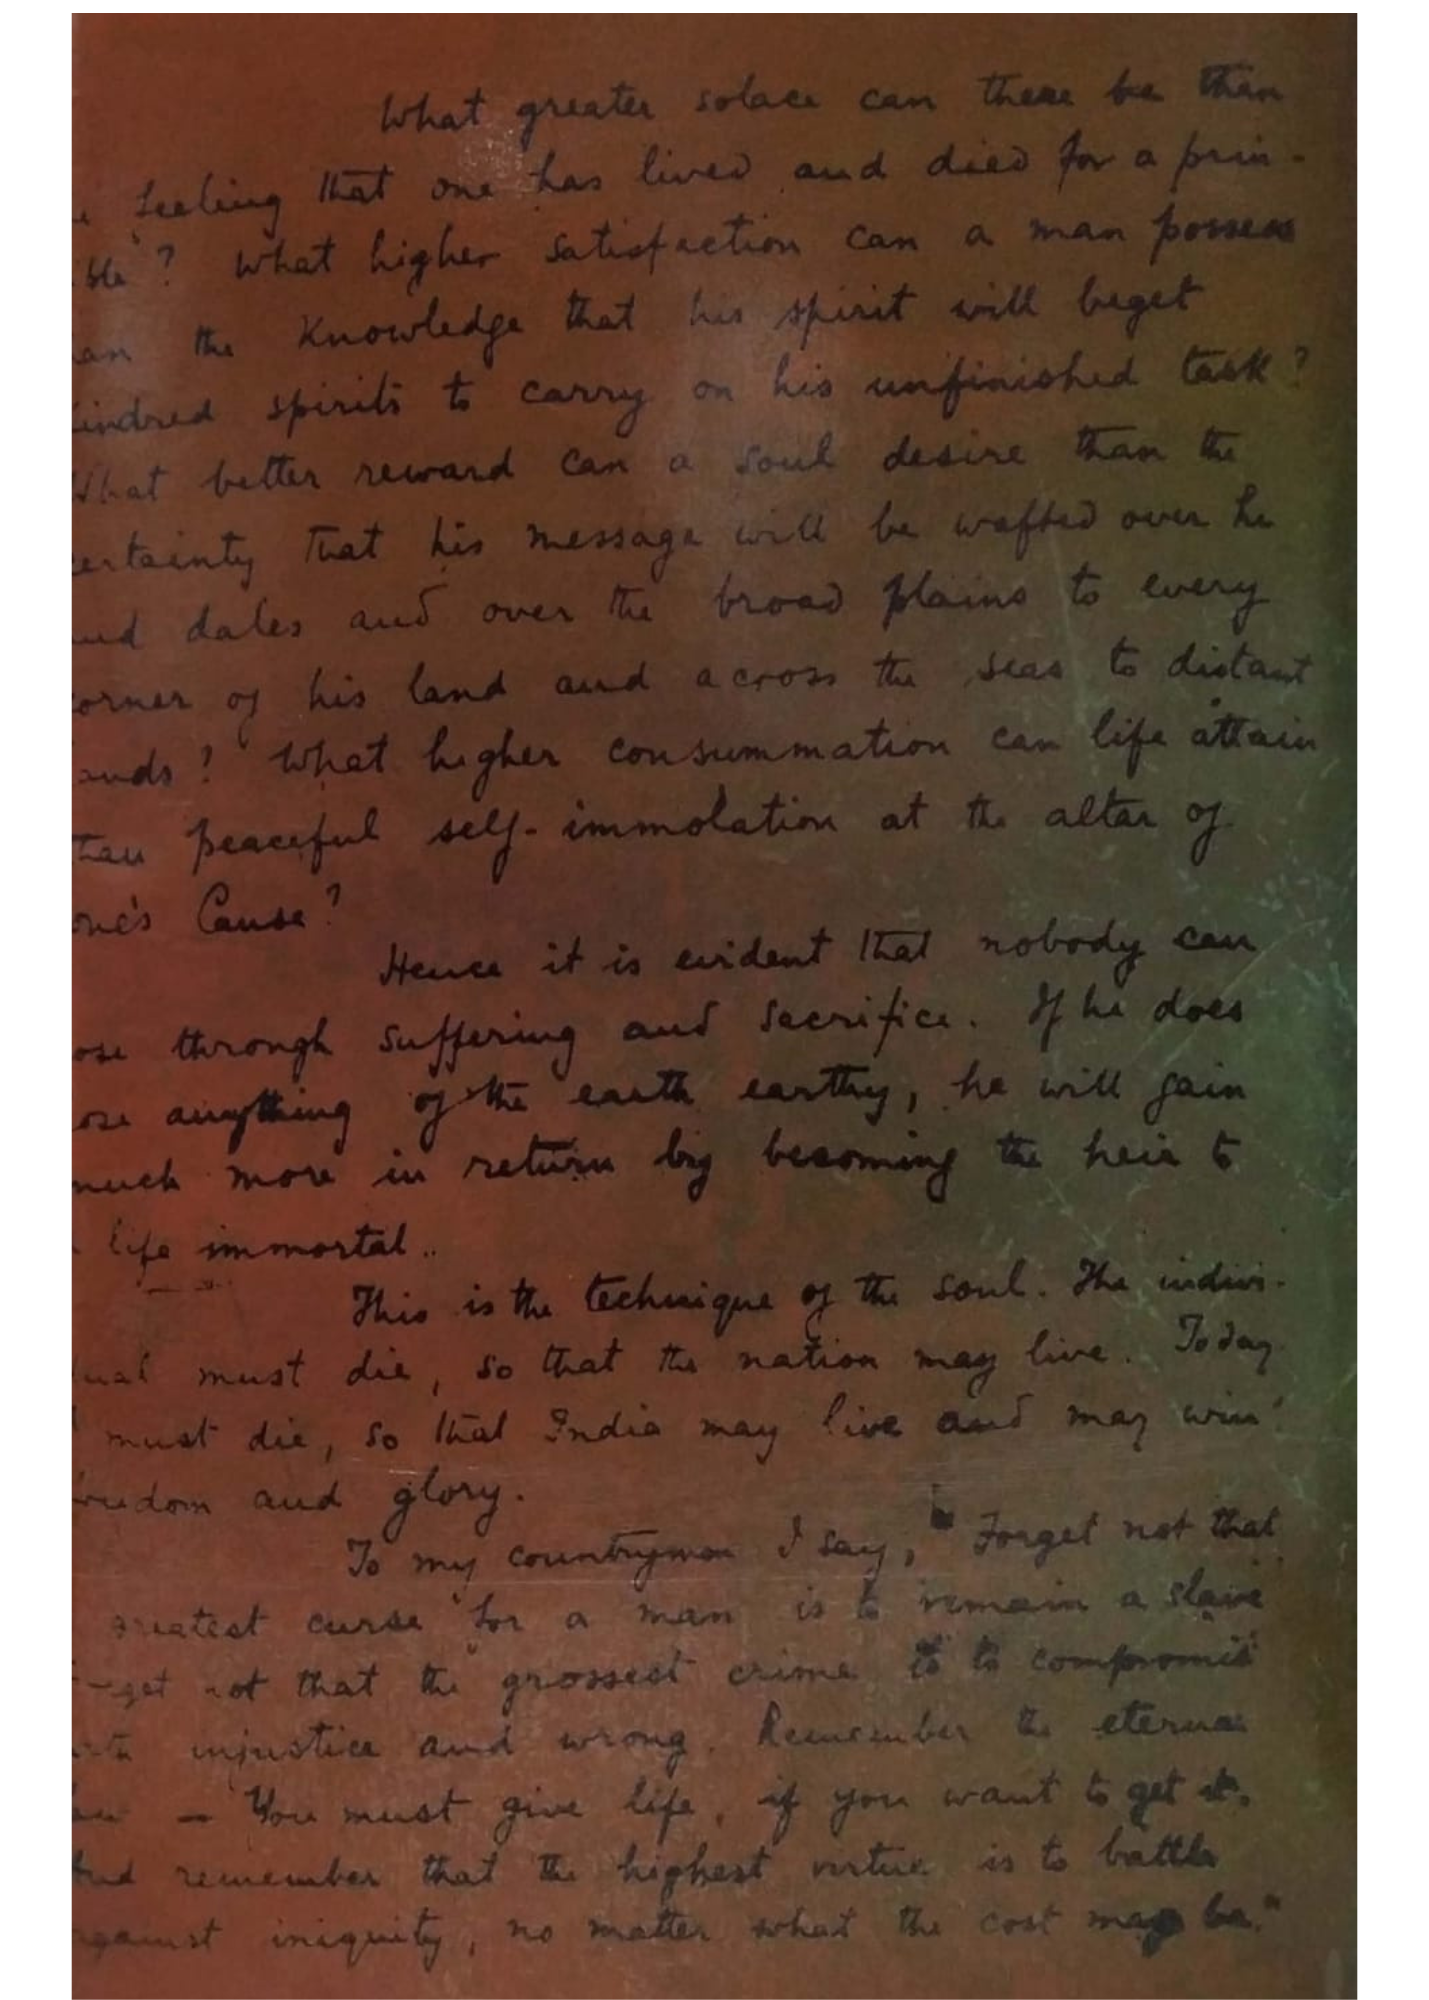 What greater solace can there be than
feeling that one has lived and died for a prin-
ble? What higher satisfaction can a man possess
an the knowledge that his spirit will beget
indred spirits to carry on his unfinished task?
What better reward can a soul desire than the
certainty that his message will be wafted over hi
and dales and over the broad plains to every
corner of his land and across the seas to distant
ands? What higher consummation can life attain
than peaceful self-immolation at the altar of
one's Cause?
Hence it is evident that nobody can
ose through suffering and sacrifice. If he does
ose anything of the earth earthy, he will gain
much more in return by becoming the heir to
life immortal..
This is the technique of the soul. The indivi-
ual must die, so that the nation may live. Today
must die, so that India may live and may win
reedom and glory.
To my countrymen I say, "Forget not that
greatest curse for a man is to remain a slave
get not that the grossest crime is to compromise
with injustice and wrong. Remember the eternal
law – You must give life, if you want to get it.
And remember that the highest virtue is to battle
against iniquity, no matter what the cost may be."